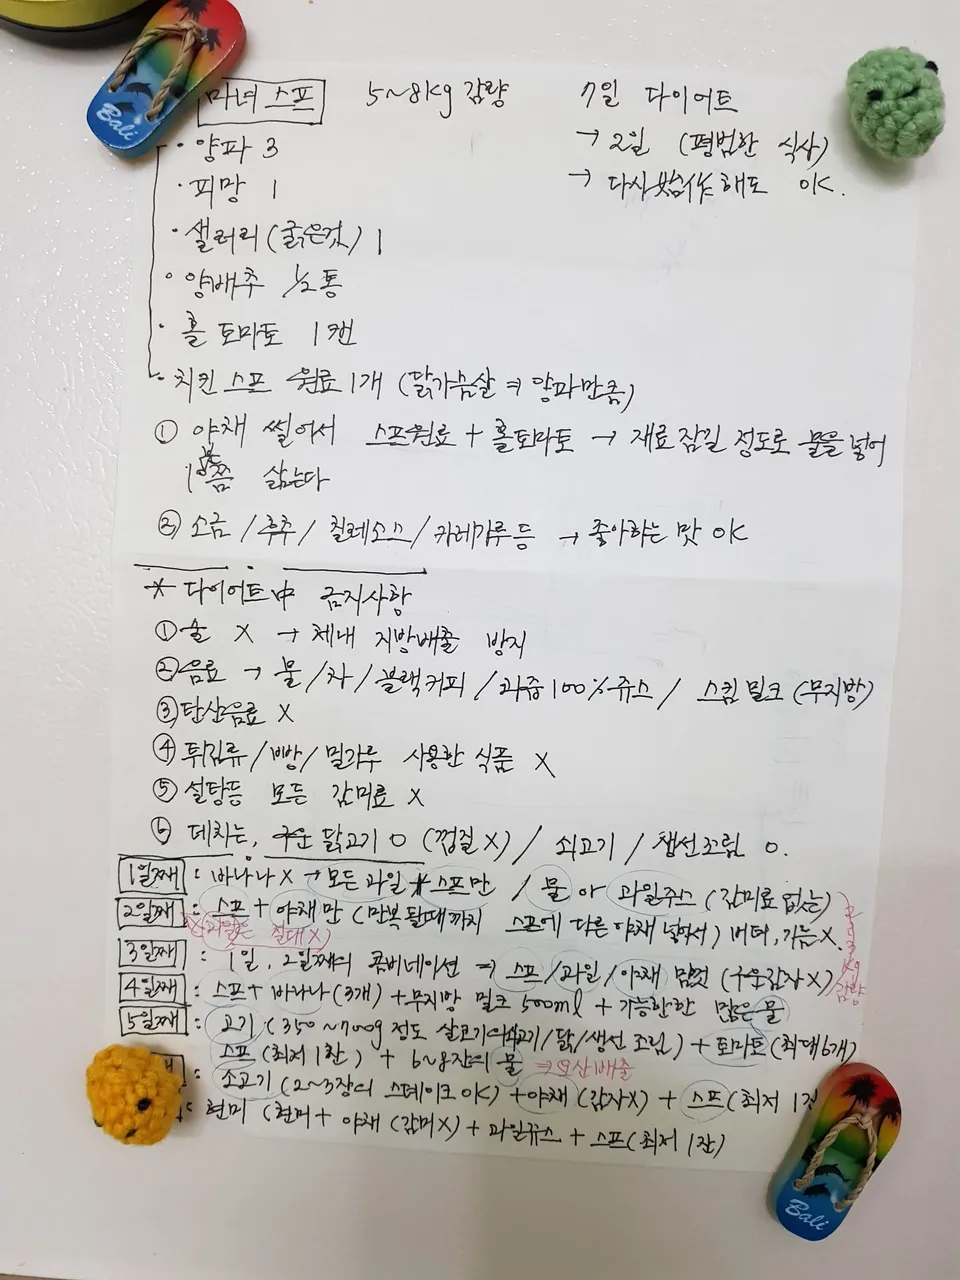 마녀 스프 5~8kg 감량 7일 다이어트
→ 2일 (평범한 식사)
→ 다시 始作해도 OK.
· 양파 3
· 피망 1
· 샐러리(굵은것) 1
· 양배추 1/2통
· 홀 토마토 1캔
· 치킨 스프 원료 1개 (닭가슴살 ⇒ 양파만큼)
① 야채 썰어서 스프원료 + 홀토마토 → 재료 잠길 정도로 물을 넣어
쯤 삶는다
② 소금 / 후추 / 칠레소스 / 카레가루 등 → 좋아하는 맛 OK
* 다이어트中 금지사항
① 술 X → 체내 지방배출 방지
② 음료 → 물 / 차 / 블랙커피 / 과즙100%쥬스 / 스킴 밀크 (무지방)
③ 탄산음료 X
④ 튀김류 / 빵 / 밀가루 사용한 식품 X
⑤ 설탕등 모든 감미료 X
⑥ 데치는, 구운 닭고기 O (껍질X) / 쇠고기 / 생선조림 O.
1일째 : 바나나X → 모든과일 + 스프만 / 물 or 과일쥬스 (감미료 없는)
2일째 : 스프 + 야채만 (만복 될때까지 스프에 다른 야채 넣어서) 버터, 기름X.
과일은 절대X)
3일째 : 1일, 2일째의 콤비네이션 ⇒ 스프/과일/야채 맘껏 (구운감자X)
감량
4일째 : 스프 + 바나나(3개) + 무지방 밀크 500ml + 가능한한 많은 물
5일째 : 고기 (350~700g 정도 살코기 / 닭/생선 조림) + 토마토(최대6개)
스프(최저 1잔) + 6~8잔의 물 ⇒ 요산배출
: 소고기 (2~3장의 스테이크 OK) + 야채 (감자X) + 스프(최저 1잔
: 현미 (현미 + 야채 (감미X) + 과일쥬스 + 스프(최저 1잔)
Bali
Bali